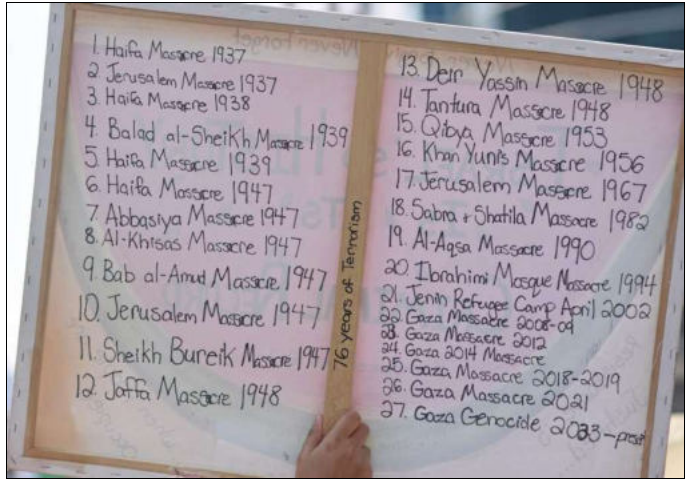 Never Forget
1. Haifa Massacre 1937
2. Jerusalem Massacre 1937
3. Haifa Massacre 1938
4. Balad al-Sheikh Massacre 1939
5. Haifa Massacre 1939
6. Haifa Massacre 1947
7. Abbasiya Massacre 1947
8. Al-Khisas Massacre 1947
9. Bab al-Amud Massacre 1947
10. Jerusalem Massacre 1947
11. Sheikh Bureik Massacre 1947
12. Jaffa Massacre 1948
76 years of Terrorism
13. Deir Yassin Massacre 1948
14. Tantura Massacre 1948
15. Qibya Massacre 1953
16. Khan Yunis Massacre 1956
17. Jerusalem Massacre 1967
18. Sabra + Shatila Massacre 1982
19. Al-Aqsa Massacre 1990
20. Ibrahimi Mosque Massacre 1994
21. Jenin Refugee Camp April 2002
22. Gaza Massacre 2008-09
23. Gaza Massacre 2012
24. Gaza 2014 Massacre
25. Gaza Massacre 2018-2019
26. Gaza Massacre 2021
27. Gaza Genocide 2033-present